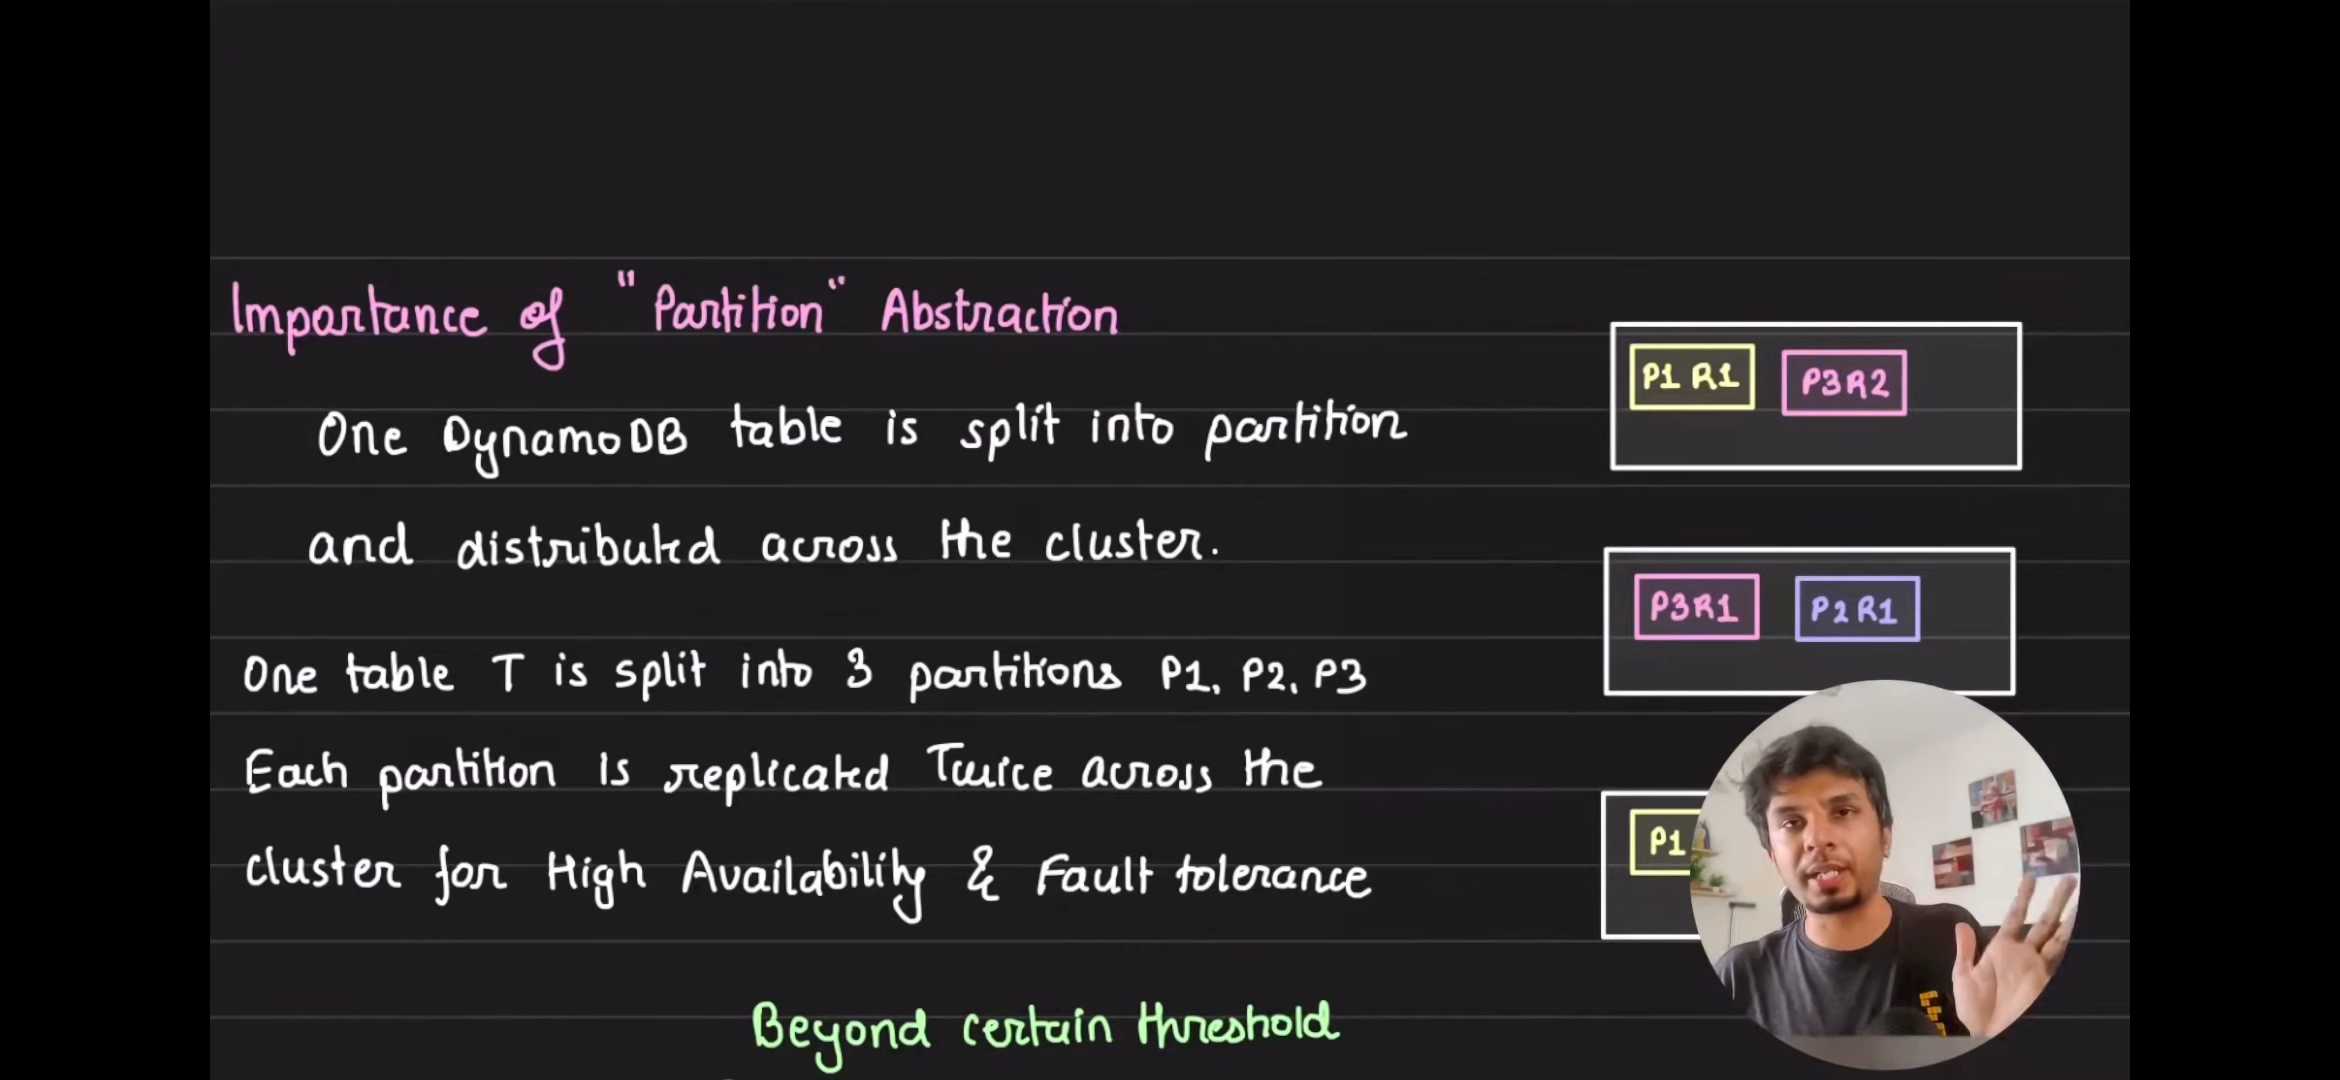 Importance of "Partition" Abstraction
One DynamoDB table is split into partition
and distributed across the cluster.
One table T is split into 3 partitions P1, P2, P3
Each partition is replicated Twice across the
cluster for High Availability & Fault tolerance
Beyond certain threshold
P1 R1 P3R2
P3R1 P2 R1
P1